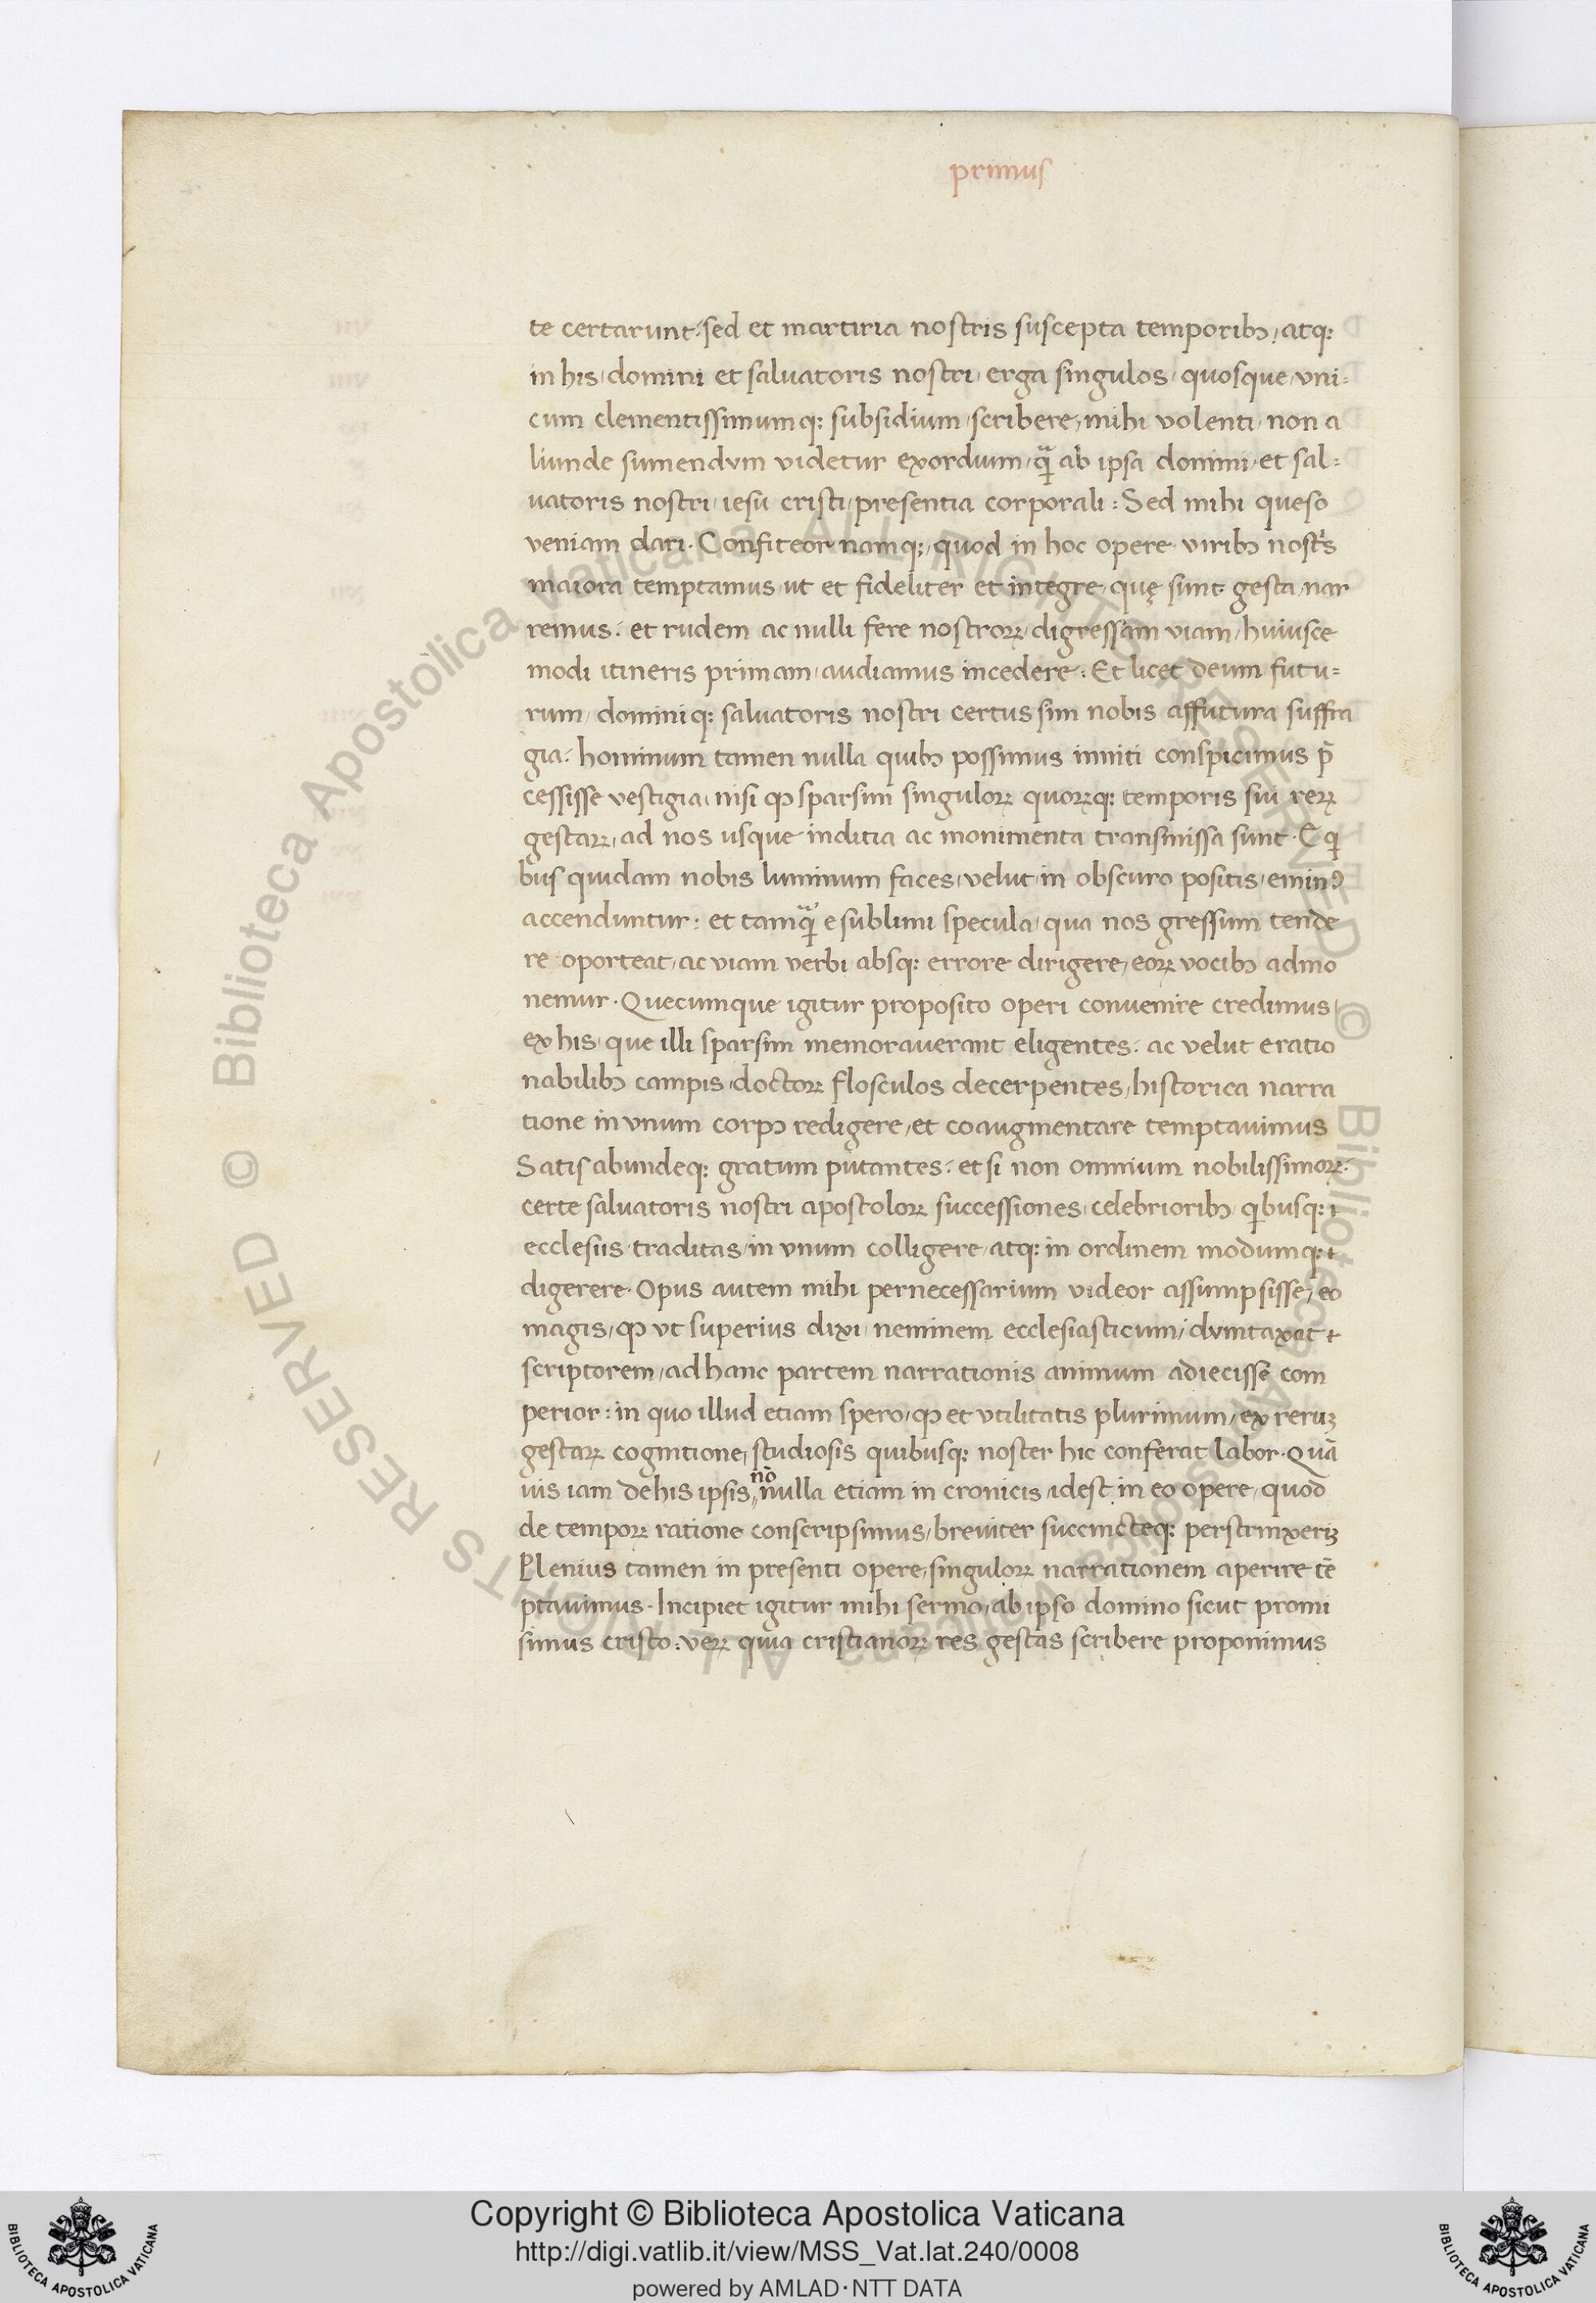 primus
te certarunt: sed et martiria nostris suscepta temporibꝫ, atqꝫ
in his, domini et saluatoris nostri, erga singulos, quosque, vni-
cum clementissimumqꝫ subsidium, scribere, mihi volenti, non a
liunde sumendvm videtur exordium, qᷓ ab ipsa domini, et sal-
uatoris nostri, iesu cristi, presentia corporali: Sed mihi queso
veniam dari. Confiteor namqꝫ, quod in hoc opere viribꝫ nostͥs
maiora temptamus, ut et fideliter et integre, quę sunt gesta, nar
remus: et rudem ac nulli fere nostroꝝ, digressam viam, huiusce
modi itineris primam, audiamus incedere: Et licet deum futu-
rum, dominiqꝫ saluatoris nostri certus sim nobis affutura suffra
gia: hominum tamen nulla quibꝫ possimus inniti conspicimus p̄
cessisse vestigia, nisi ꝙ sparsim singuloꝝ quoꝝqꝫ temporis sui reꝝ
gestaꝝ, ad nos usque inditia ac monimenta transmissa sunt. E qͥ
bus quidam nobis luminum faces, velut in obscuro positis, eminꝯ
accenduntur: et tamqᷓ e sublimi specula, qua nos gressum tende
re oporteat, ac viam verbi absqꝫ errore dirigere, eoꝝ vocibꝫ admo
nemur. Quecumque igitur proposito operi convenire credimus,
ex his, que illi sparsim memoraverant eligentes: ac velut e ratio
nabilibꝫ campis, doctoꝝ flosculos decerpentes, historica narra
tione in vnum corpꝫ redigere, et coaugmentare temptavimus
Satis abundeqꝫ gratum putantes: et si non omnium nobilissimoꝝ:
certe saluatoris nostri apostoloꝝ successiones, celebrioribꝫ, qͥbusqꝫ
ecclesiis traditas, in vnum colligere, atqꝫ in ordinem modumqꝫ
digerere. Opus autem mihi pernecessarium videor assumpsisse, eo
magis, ꝙ vt superius dixi, neminem ecclesiasticum, dvmtaxat
scriptorem, ad hanc partem narrationis animum adiecisse com
perior: in quo illud etiam spero, ꝙ et vtilitatis plurimum, ex reruꝫ
gestaꝝ cognitione, studiosis quibusqꝫ noster hic conferat labor. Quā
vis iam de his ipsis, nō nulla etiam in cronicis, idest in eo opere, quod
de tempoꝝ ratione conscripsimus, breviter succincteqꝫ perstrinxeriꝫ
Plenius tamen in presenti opere, singuloꝝ narrationem aperire tē
ptavimus. Incipiet igitur mihi sermo, ab ipso domino sicut promi
simus cristo: veꝝ quia cristianoꝝ res gestas scribere proponimus
© Biblioteca Apostolica Vaticana ALL RIGHTS RESERVED
© Biblioteca Apostolica Vaticana ALL RIGHTS RESERVED
Copyright © Biblioteca Apostolica Vaticana
http://digi.vatlib.it/view/MSS_Vat.lat.240/0008
powered by AMLAD·NTT DATA
BIBLIOTECA APOSTOLICA VATICANA
BIBLIOTECA APOSTOLICA VATICANA